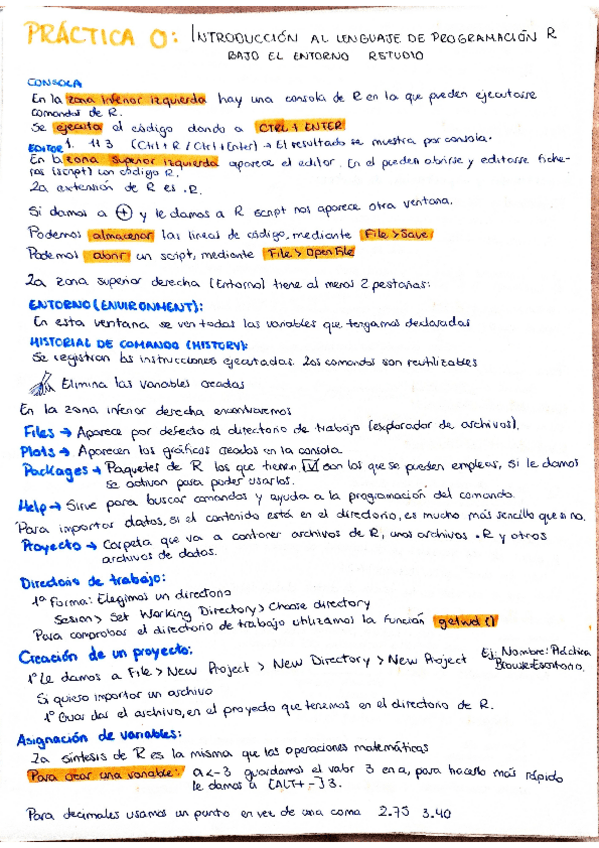 PRÁCTICA 0: INTRODUCCIÓN AL LENGUAJE DE PROGRAMACIÓN R
BAJO EL ENTORNO RSTUDIO
CONSOLA
En la zona inferior izquierda hay una consola de R en la que pueden ejecutarse
comandos de R.
Se ejecuta el código dando a CTRL + ENTER
EDITOR 1. 113 (Ctrl+R / Ctrl+Enter) → El resultado se muestra por consola.
En la zona superior izquierda aparece el editor. En el pueden abrirse y editarse fiche-
ros (script) con código R.
La extensión de R es .R.
Si damos a + y le damos a R script nos aparece otra ventana.
Podemos almacenar las líneas de código, mediante File > Save
Podemos abrir un script, mediante File > Open File
La zona superior derecha (Entorno) tiene al menos 2 pestañas:
ENTORNO (ENVIRONMENT):
En esta ventana se ven todas las variables que tengamos declaradas
HISTORIAL DE COMANDO (HISTORY):
Se registran las instrucciones ejecutadas. Los comandos son reutilizables
Elimina las variables creadas
En la zona inferior derecha encontraremos
Files → Aparece por defecto el directorio de trabajo (explorador de archivos).
Plots → Aparecen los gráficos creados en la consola.
Packages → Paquetes de R los que tienen ☑ son los que se pueden emplear, si le damos
se activan para poder usarlos.
Help → Sirve para buscar comandos y ayuda a la programación del comando.
Para importar datos, si el contenido está en el directorio, es mucho más sencillo que si no.
Proyecto → Carpeta que va a contener archivos de R, unos archivos .R y otros
archivos de datos.
Directorio de trabajo:
1ª Forma: Elegimos un directorio
Sesion > Set Working Directory > Choose directory
Para comprobar el directorio de trabajo utilizamos la función getwd()
Creación de un proyecto:
1º Le damos a File > New Project > New Directory > New Project Ej: Nombre: Práctica
Browse: Escritorio.
Si quiero importar un archivo
1º Guardar el archivo, en el proyecto que tenemos en el directorio de R.
Asignación de variables:
La síntesis de R es la misma que las operaciones matemáticas
Para crear una variable: a <- 3 guardamos el valor 3 en a, para hacerlo más rápido
le damos a [ALT+-] 3.
Para decimales usamos un punto en vez de una coma 2.75 3.40